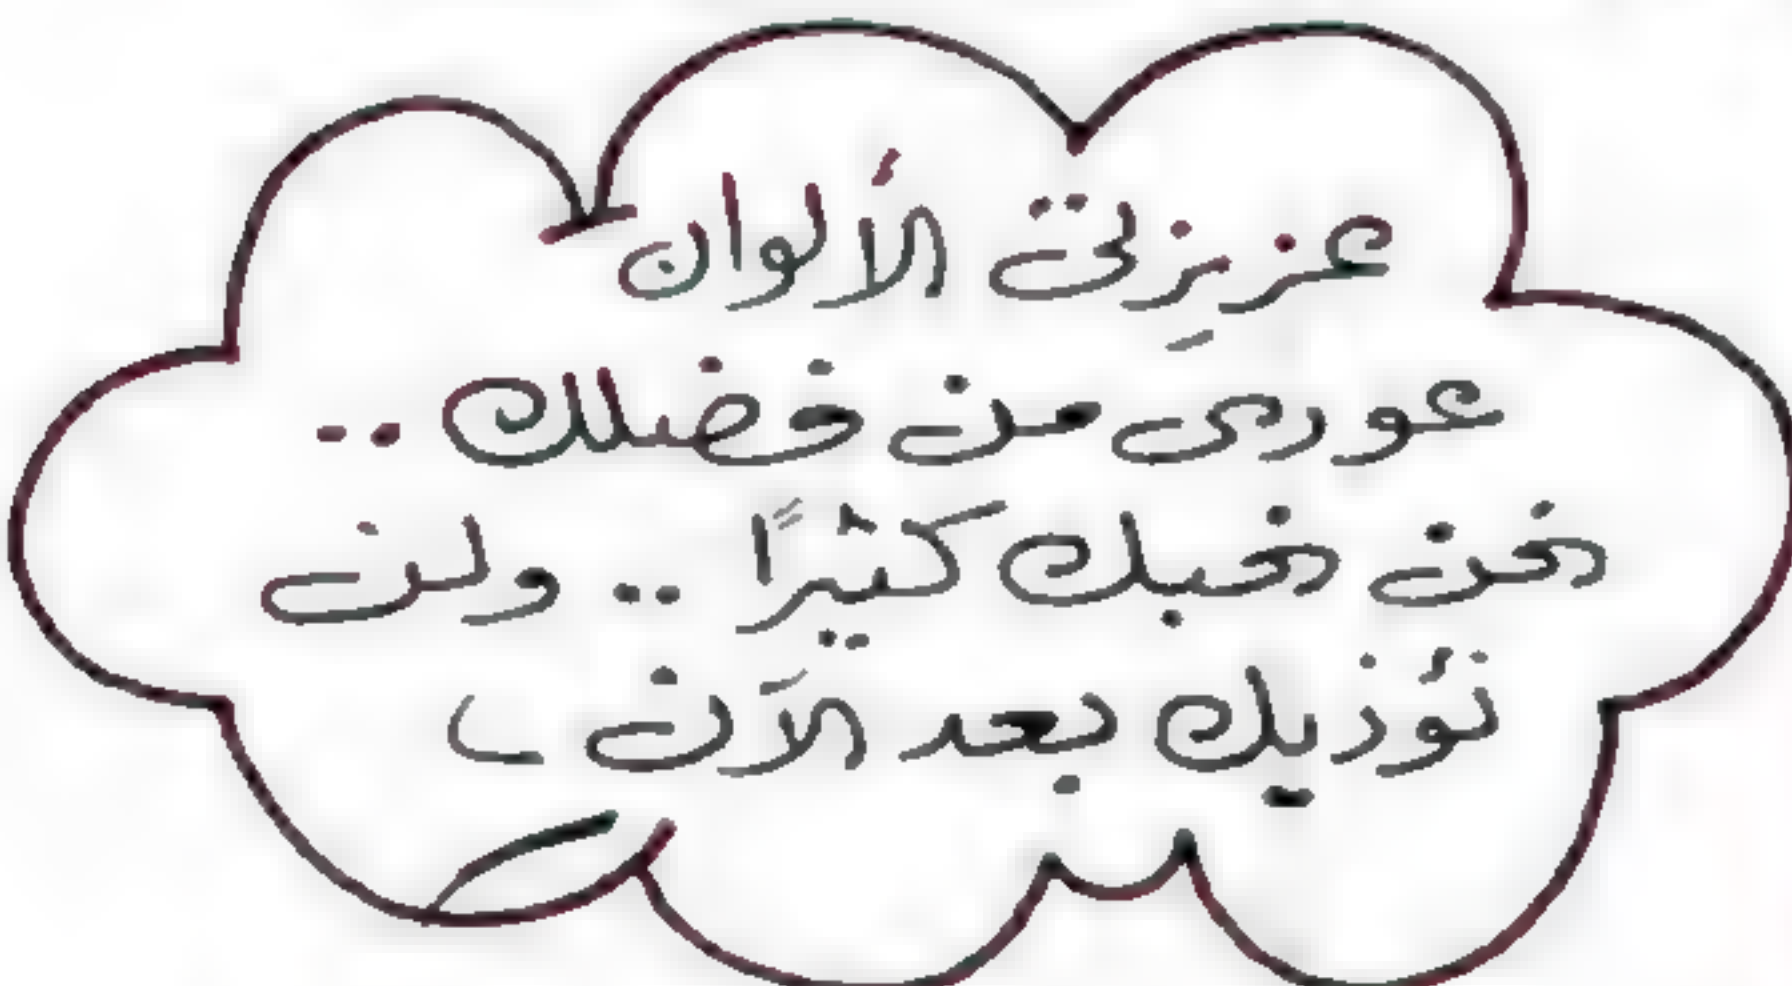 عزيزِتى الألوان
عودى من فضلك ..
نحن نحبك كثيرًا .. ولن
نؤذيك بعد الآن )